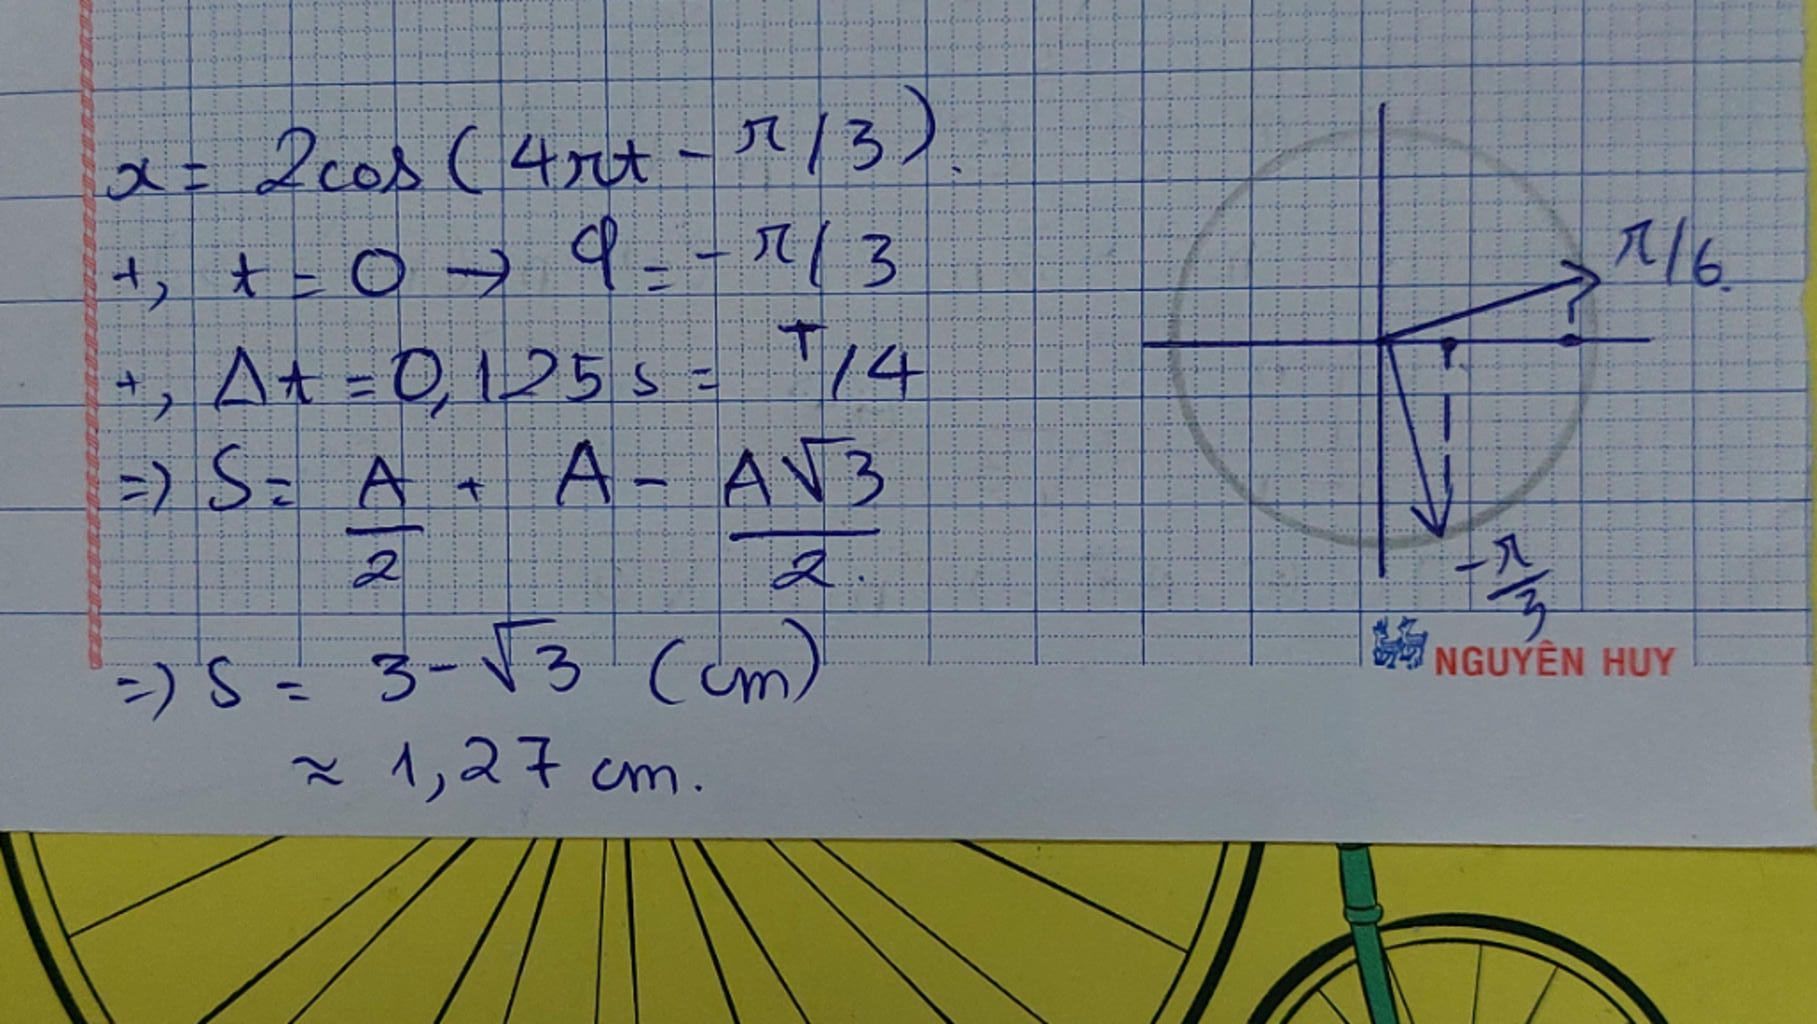 x = 2cos(4πt - π/3).
+, t = 0 → φ = -π/3
+, Δt = 0,125 s = T/4
=) S = A/2 + A - A√3/2.
=) S = 3 - √3 (cm)
≈ 1,27 cm.
π/6.
-π/3
NGUYÊN HUY